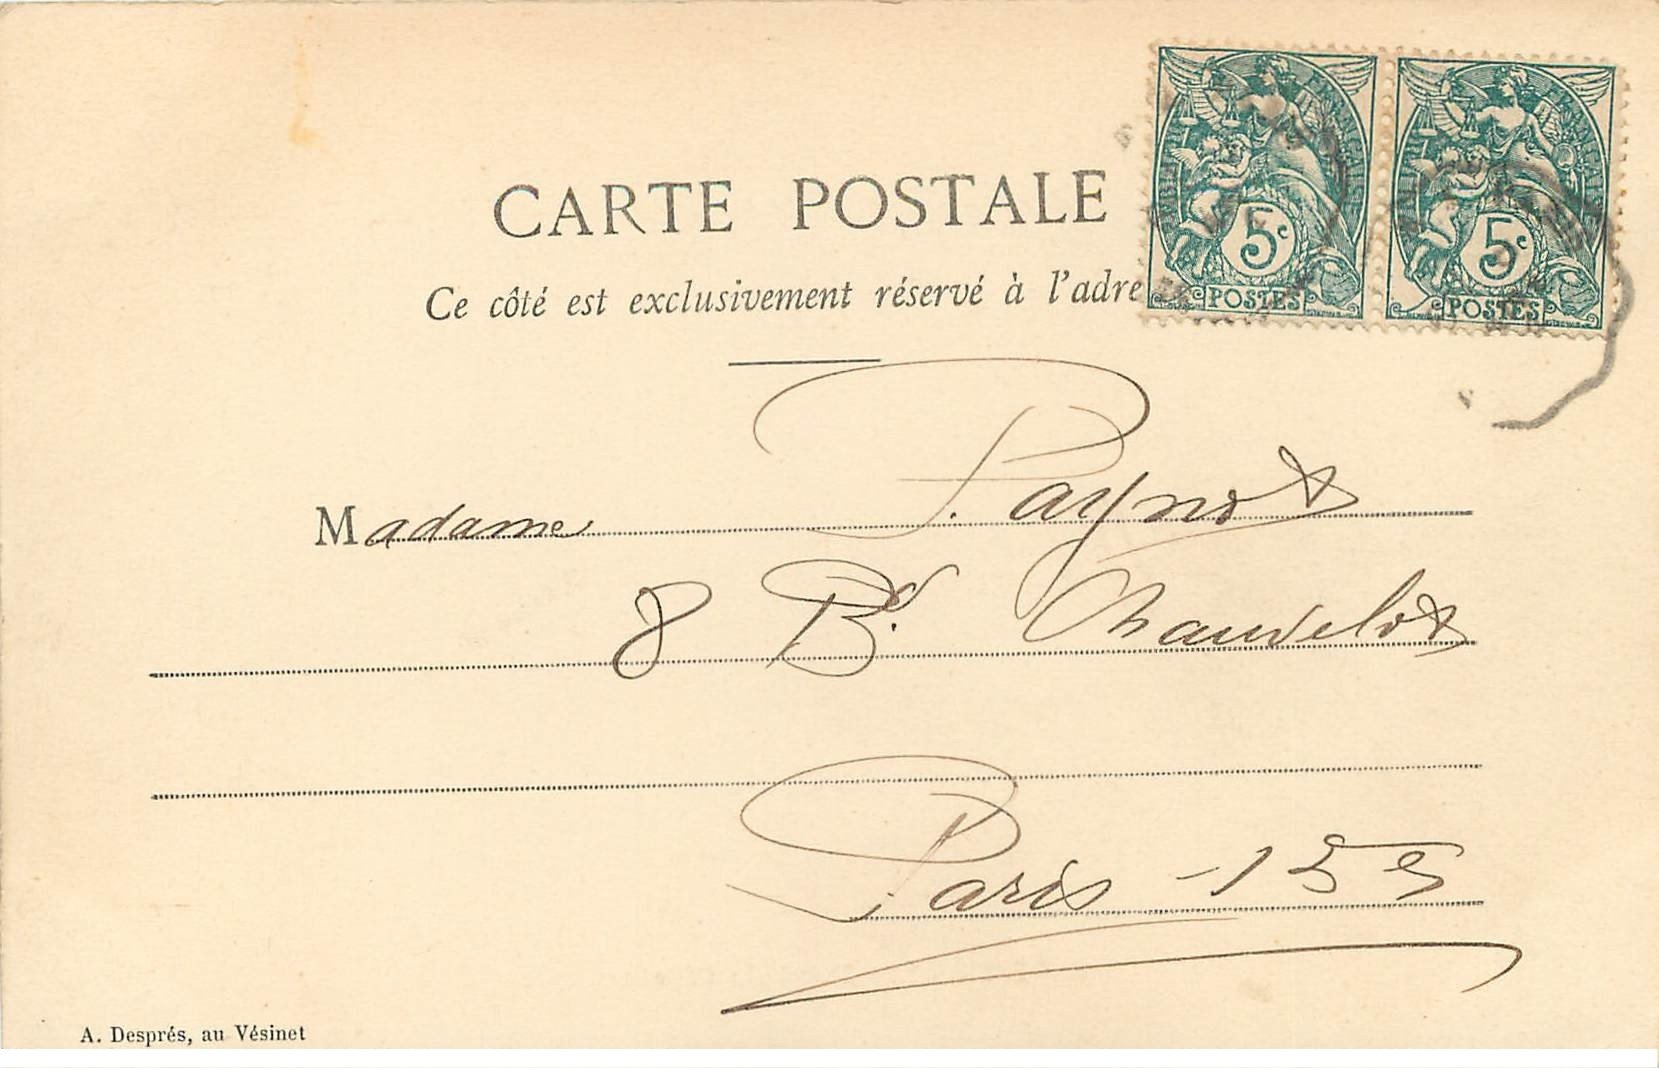 CARTE POSTALE
Ce côté est exclusivement réservé à l'adre
RÉPUBLIQUE FRANÇAISE
5c
POSTES
RÉPUBLIQUE FRANÇAISE
5c
POSTES
Madame P. Paynot
8 Bd. Chauvelot
Paris - 15e
A. Després, au Vésinet